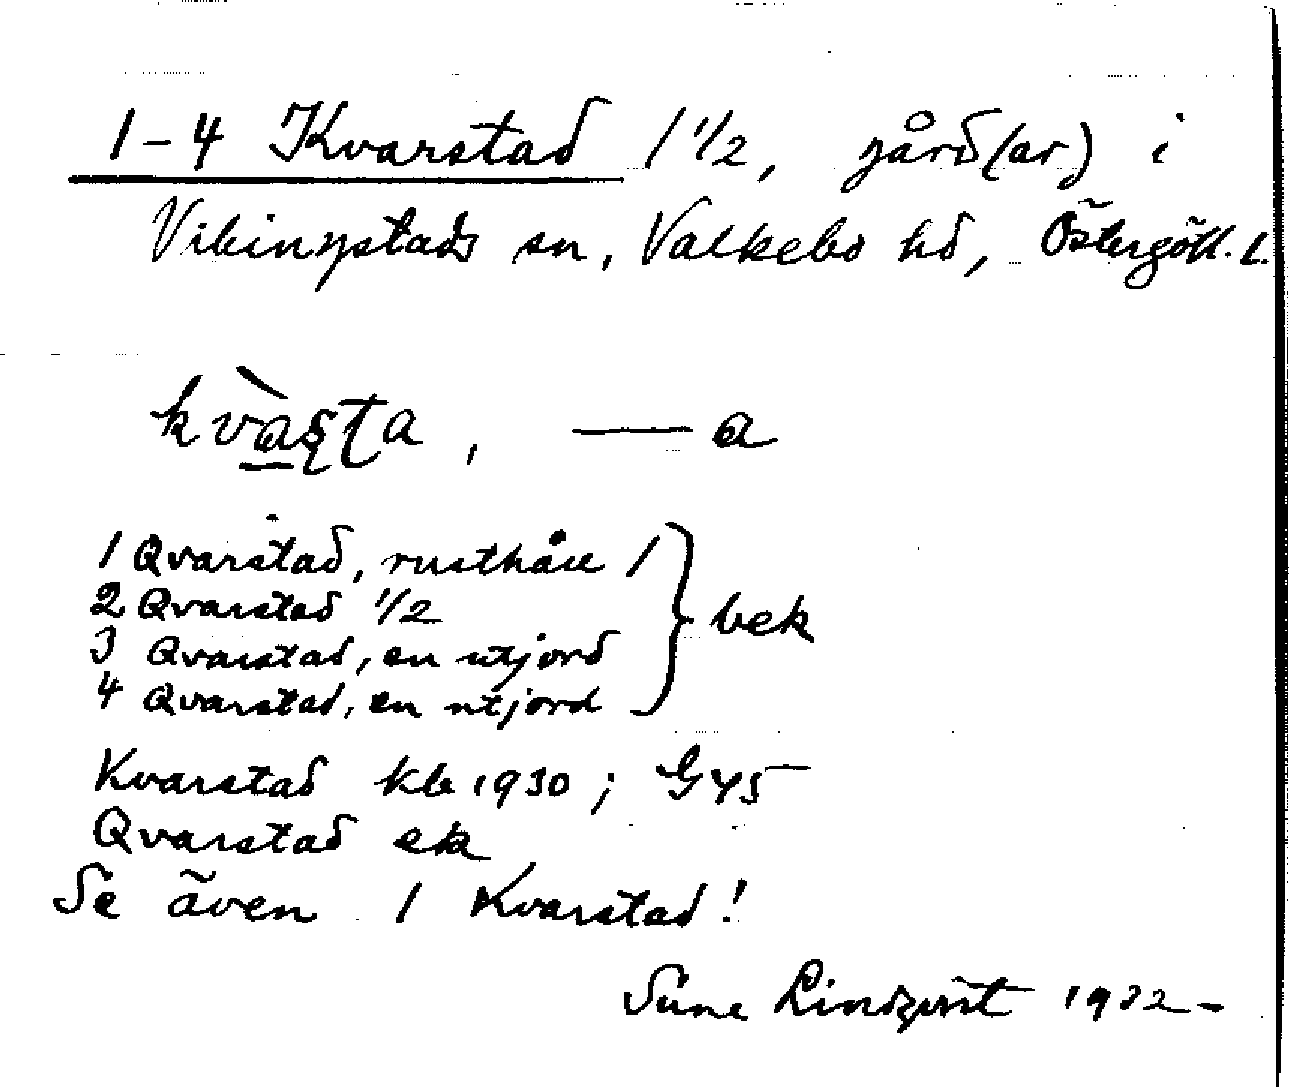 1-4 Kvarstad 1 1/2, gård(ar) i
Vikingstads sn, Valkebo hd, Östergötl. l.
kvàʂʈa, — a
1 Qvarstad, rusthåll 1
2 Qvarstad 1/2
3 Qvarstad, en utjord
4 Qvarstad, en utjord
} bek
Kvarstad kb 1930; G45
Qvarstad ek
Se även 1 Kvarstad!
Sune Lindqvist 1932